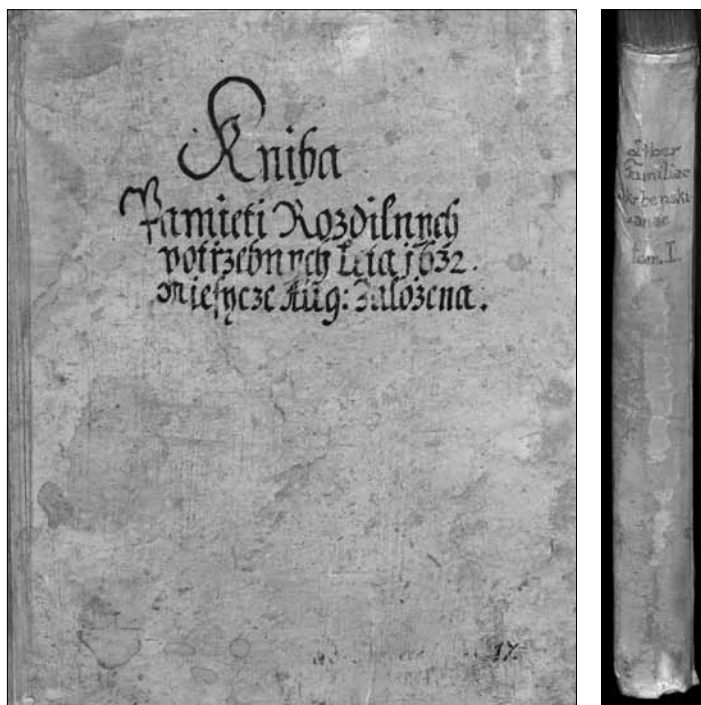 Kniha
Pamieti Rozdilnych
potrzebnych Leta j632.
Miesycze Aug: Založena.
17.
Liber
Familiae
Skrbenski-
anae
tom. I.